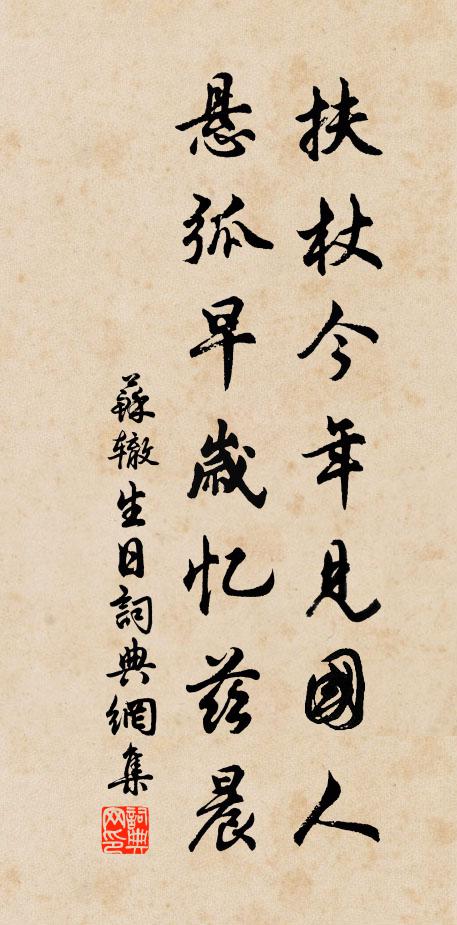 扶杖今年見國人
悬弧早歲忆茲晨
蘇辙生日詞典網集
詞典网印